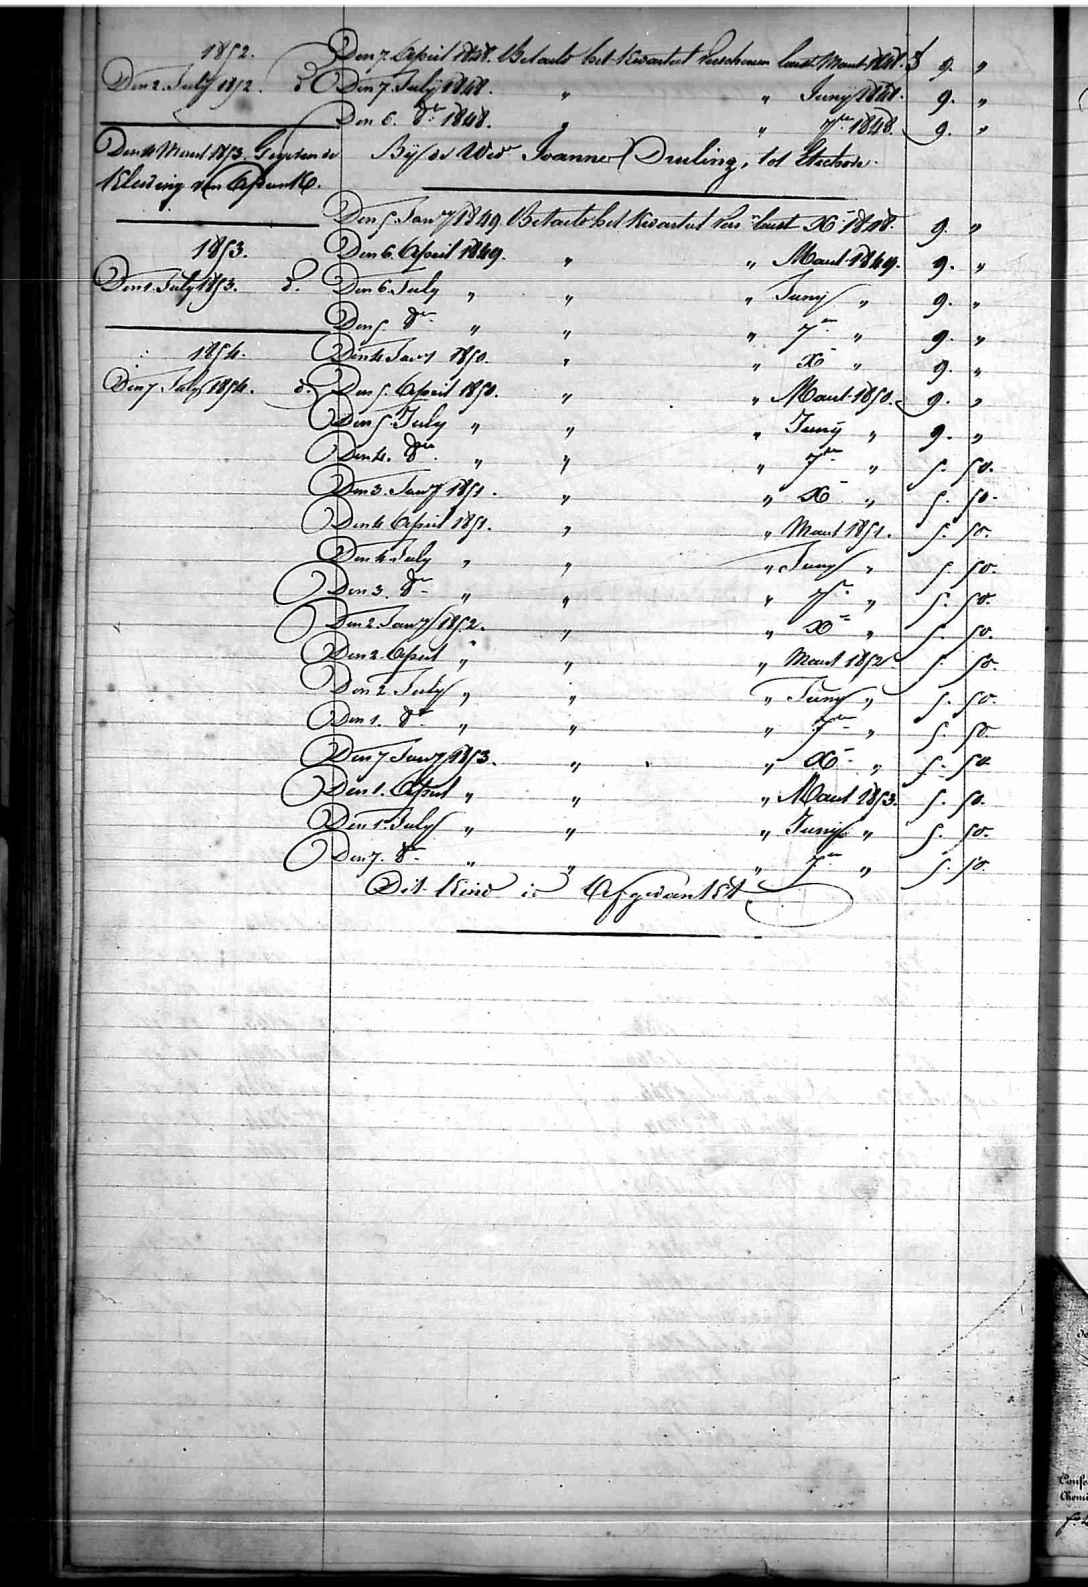 1852.
Den 2 July 1852. d°
Den 4 Maart 1853.
Kleeding van
1853.
Den 1 July 1853. d°.
1854.
Den 7 July 1854. d°.
Den 7 April 1848. Betaald het Kwartaal Verschenen laast Maart 1848. ƒ 9. "
Den 7 July 1848. " " Juny 1848. 9. "
Den 6. 8br 1848. " " 7br 1848. 9. "
By de Wed. Joannes tot
Den 5 Janry 1849 Betaald het Kwartaal Vers laast Xr 1848. 9. "
Den 6 April 1849. " " Maart 1849. 9. "
Den 6 July " " " Juny " 9. "
Den 5. 8br " " " 7br " 9. "
Den 4 Janry 1850. " " Xr " 9. "
Den 5 April 1850. " " Maart 1850. 9. "
Den 5 July " " " Juny " 9. "
Den 4. 8br. " " " 7br " 5. 50.
Den 3 Janry 1851. " " Xr " 5. 50.
Den 4 April 1851. " " Maart 1851. 5. 50.
Den 4 July " " " Juny " 5. 50.
Den 3. 8br " " " 7br " 5. 50.
Den 2 Janry 1852. " " Xr " 5. 50.
Den 2 April " " " Maart 1852 5. 50.
Den 2 July " " " Juny " 5. 50.
Den 1. 8br " " " 7br " 5. 50
Den 7 Janry 1853. " " Xr " 5. 50
Den 1. April " " " Maart 1853. 5. 50.
Den 1 July " " " Juny " 5. 50.
Den 7. 8br " " " 7br " 5. 50.
Dit Kind is Afgedankt.